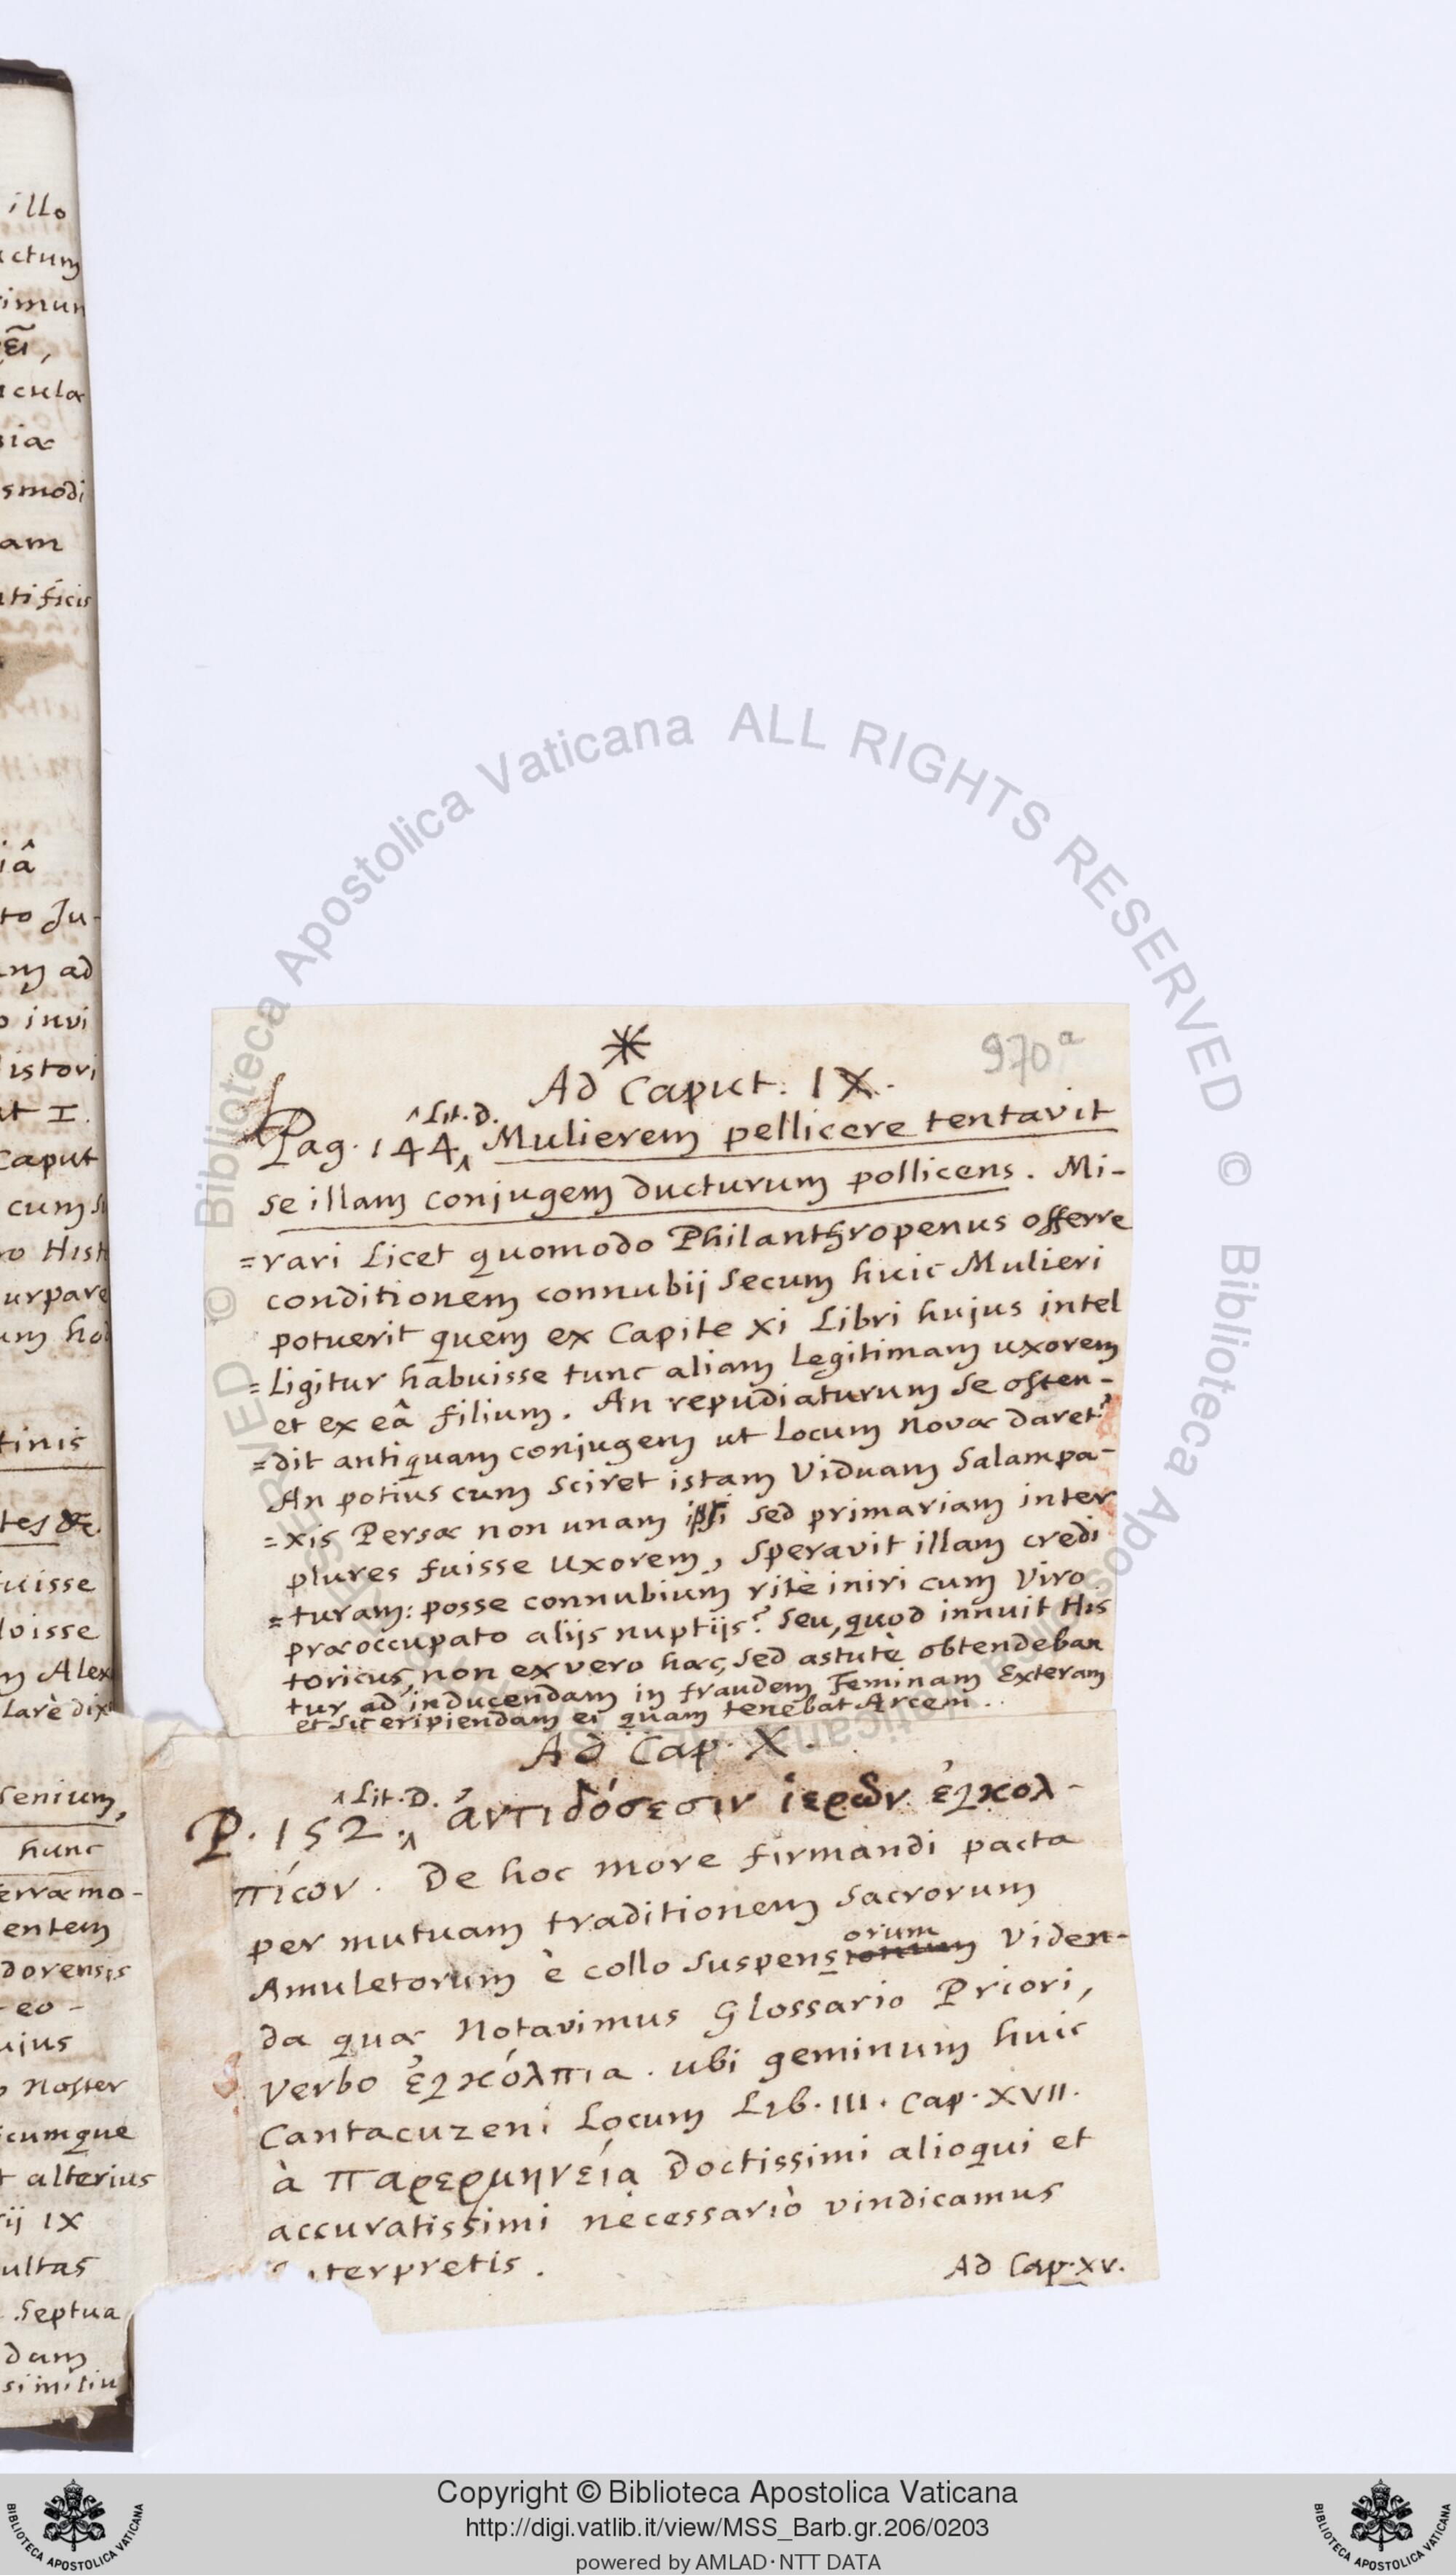 illo
ctum
imun
ει,
cula
iæ
smodi
am
tificis
iâ
to Ju-
m ad
o invi
istori
ut I.
Caput
cum si
ro Hist
urpare
um hoi
tinis
tes &c.
uisse
oisse
m Alex
larè dix
senium,
hunc
erræmo-
entem
dorensis
-eo-
ujus
o Noster
icumque
t alterius
rij IX
ultas
Septua
dam
similiu
*
970a
Ad Caput. IX.
Pag. 144 ^Lit. D. Mulierem pellicere tentavit
se illam conjugem ducturum pollicens. Mi-
=rari Licet quomodo Philanthropenus offerre
conditionem connubij secum huic Mulieri
potuerit quem ex Capite XI Libri hujus intel
=ligitur habuisse tunc aliam Legitimam uxorem
et ex eâ filium. An repudiaturum se osten-
=dit antiquam conjugem ut Locum novæ daret?
An potius cum sciret istam Viduam Salampa-
=xis Persæ non unam ipsi sed primariam inter
plures fuisse Uxorem, speravit illam credi
=turam: posse connubium ritè iniri cum Viro
præoccupato alijs nuptijs? Seu, quod innuit His
toricus, non ex vero hæc, sed astutè obtendeban
tur ad inducendam in fraudem Feminam Exteram
et sic eripiendam ei quam tenebat Arcem.
Ad Cap. X.
P. 152. ^Lit. D. ἀντιδόσεσιν ἱερῶν ἐγκολ-
πίων. De hoc more firmandi pacta
per mutuam traditionem sacrorum
Amuletorum è collo suspensorum Viden-
da quæ Notavimus Glossario Priori,
Verbo ἐγκόλπια. ubi geminum huic
Cantacuzeni Locum Lib. III. Cap. XVII.
à παρερμηνείᾳ Doctissimi alioqui et
accuratissimi necessariò vindicamus
terpretis.
Ad Cap. XV.
Copyright © Biblioteca Apostolica Vaticana
http://digi.vatlib.it/view/MSS_Barb.gr.206/0203
powered by AMLAD·NTT DATA